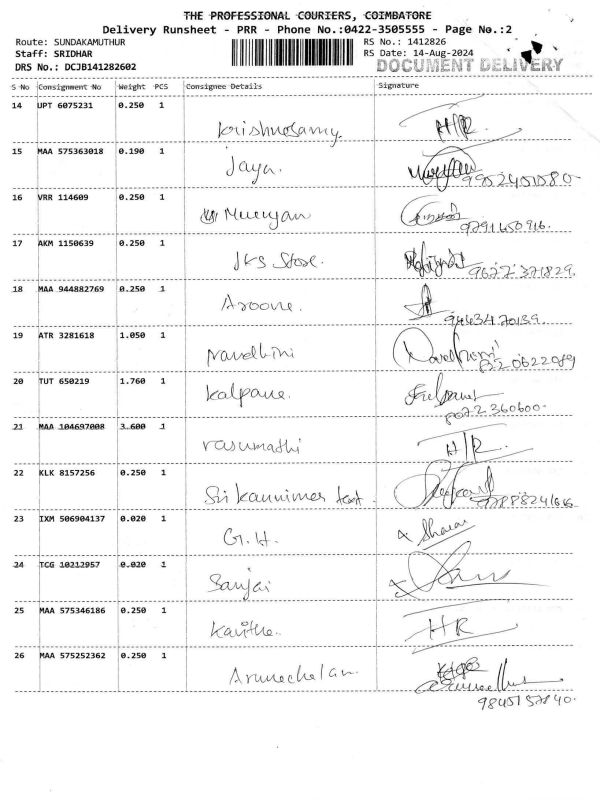 THE PROFESSIONAL COURIERS, COIMBATORE
Delivery Runsheet - PRR - Phone No.:0422-3505555 - Page No.:2
Route: SUNDAKAMUTHUR RS No.: 1412826
Staff: SRIDHAR RS Date: 14-Aug-2024
DRS No.: DCJB141282602 DOCUMENT DELIVERY
S No Consignment No Weight PCS Consignee Details Signature
14 UPT 6075231 0.250 1
Krishnosamy. H/R.
15 MAA 575363018 0.190 1
Jaya.
16 VRR 114609 0.250 1
Murugan
9791450916.
17 AKM 1150639 0.250 1
JKS Store.
9677 371829.
18 MAA 944882769 0.250 1
Aroone.
9443470139.
19 ATR 3281618 1.050 1
Nandhini
20 TUT 650219 1.760 1
Kalpane.
8072 360600.
21 MAA 104697008 3.600 1
Vasumathi H/R.
22 KLK 8157256 0.250 1
Sri kannimar text.
23 IXM 506904137 0.020 1
G.H.
24 TCG 10212957 0.020 1
Sanjai
25 MAA 575346186 0.250 1
Kavithe. HR
26 MAA 575252362 0.250 1
Arunachalam.